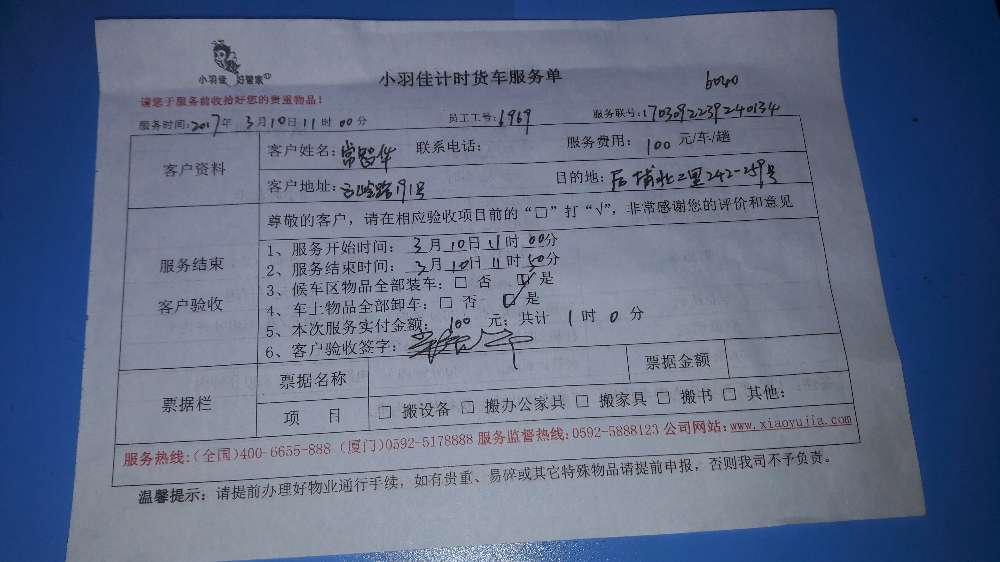 小羽佳 好管家
小羽佳计时货车服务单
6040
请您于服务前收拾好您的贵重物品！
服务时间：2017年 3月10日11时00分 员工工号：6969 服务联号：1703092239240134
客户资料
客户姓名：常智华 联系电话： 服务费用：100元/车/趟
客户地址：路91号 目的地：后埔北二里242-259号
服务结束
客户验收
尊敬的客户，请在相应验收项目前的“□”打“√”，非常感谢您的评价和意见
1、服务开始时间：3月10日11时00分
2、服务结束时间：3月10日11时50分
3、候车区物品全部装车：□ 否 ☑ 是
4、车上物品全部卸车：□ 否 ☑ 是
5、本次服务实付金额：100元；共计 1时0分
6、客户验收签字：
票据栏
票据名称 票据金额
项 目 □ 搬设备 □ 搬办公家具 □ 搬家具 □ 搬书 □ 其他：
服务热线：(全国)400-6655-888 (厦门)0592-5178888 服务监督热线：0592-5888123 公司网站：www.xiaoyujia.com
温馨提示：请提前办理好物业通行手续，如有贵重、易碎或其它特殊物品请提前申报，否则我司不予负责。